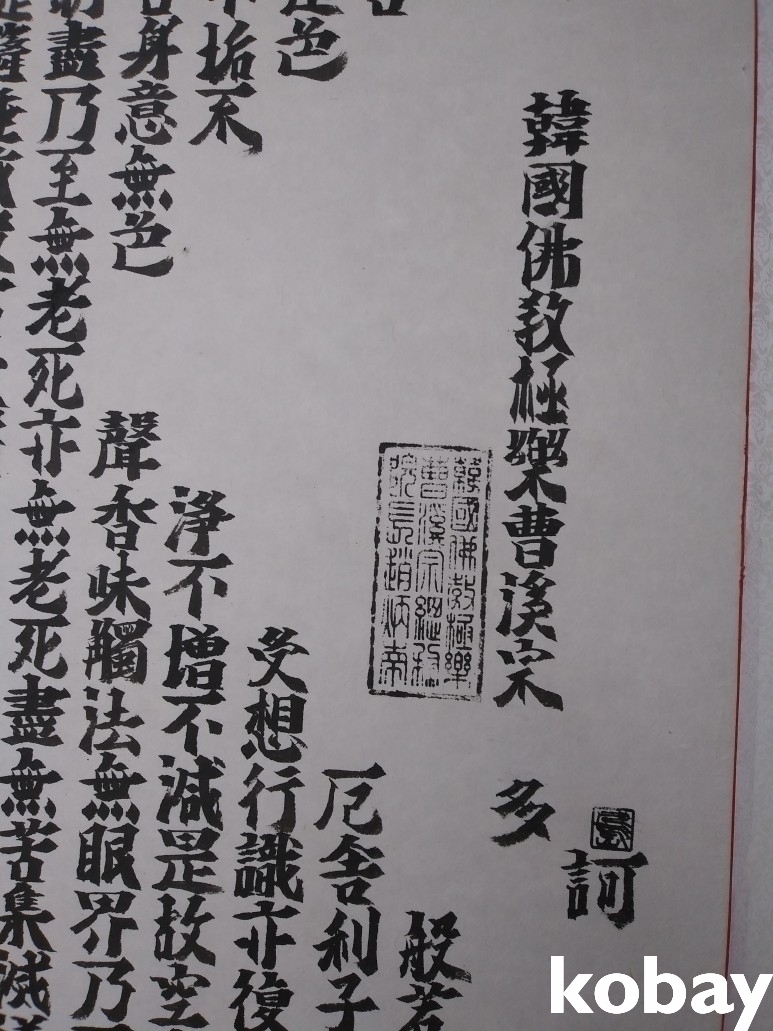 訶
韓國佛教極樂曹溪宗 多
韓國佛教極樂
曹溪宗總務
院長趙炳
般若
厄舍利子
色 受想行識亦復
不垢不 淨不增不減是故空
身意無色 聲香味觸法無眼界乃
盡乃至無老死亦 無老死盡無苦集滅
kobay